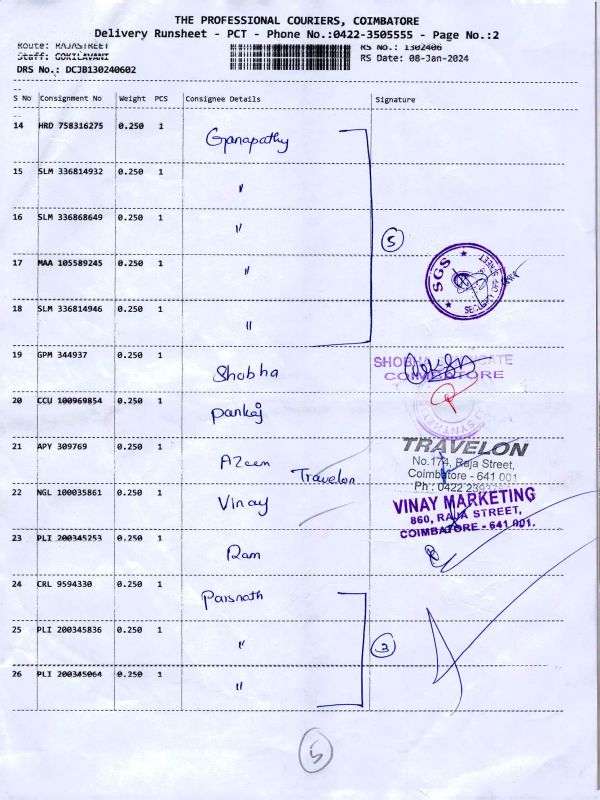 THE PROFESSIONAL COURIERS, COIMBATORE
Delivery Runsheet - PCT - Phone No.:0422-3505555 - Page No.:2
Route: RAJASTREET RS No.: 1302406
Staff: GOKILAVANI RS Date: 08-Jan-2024
DRS No.: DCJB130240602
S No Consignment No Weight PCS Consignee Details Signature
14 HRD 758316275 0.250 1 Ganapathy
15 SLM 336814932 0.250 1 "
16 SLM 336868649 0.250 1 "
5
17 MAA 105589245 0.250 1 "
SGS
18 SLM 336814946 0.250 1 "
19 GPM 344937 0.250 1 Shobha
COIMBATORE
20 CCU 100969854 0.250 1 Pankaj
21 APY 309769 0.250 1 Azeem Travelon
TRAVELON
No.174, Raja Street,
Coimbatore - 641 001
Ph : 0422
22 NGL 100035861 0.250 1 Vinay
VINAY MARKETING
860, RAJA STREET,
COIMBATORE - 641 001.
23 PLI 200345253 0.250 1 Ram
24 CRL 9594330 0.250 1 Parsnath
25 PLI 200345836 0.250 1 "
3
26 PLI 200345064 0.250 1 "
5